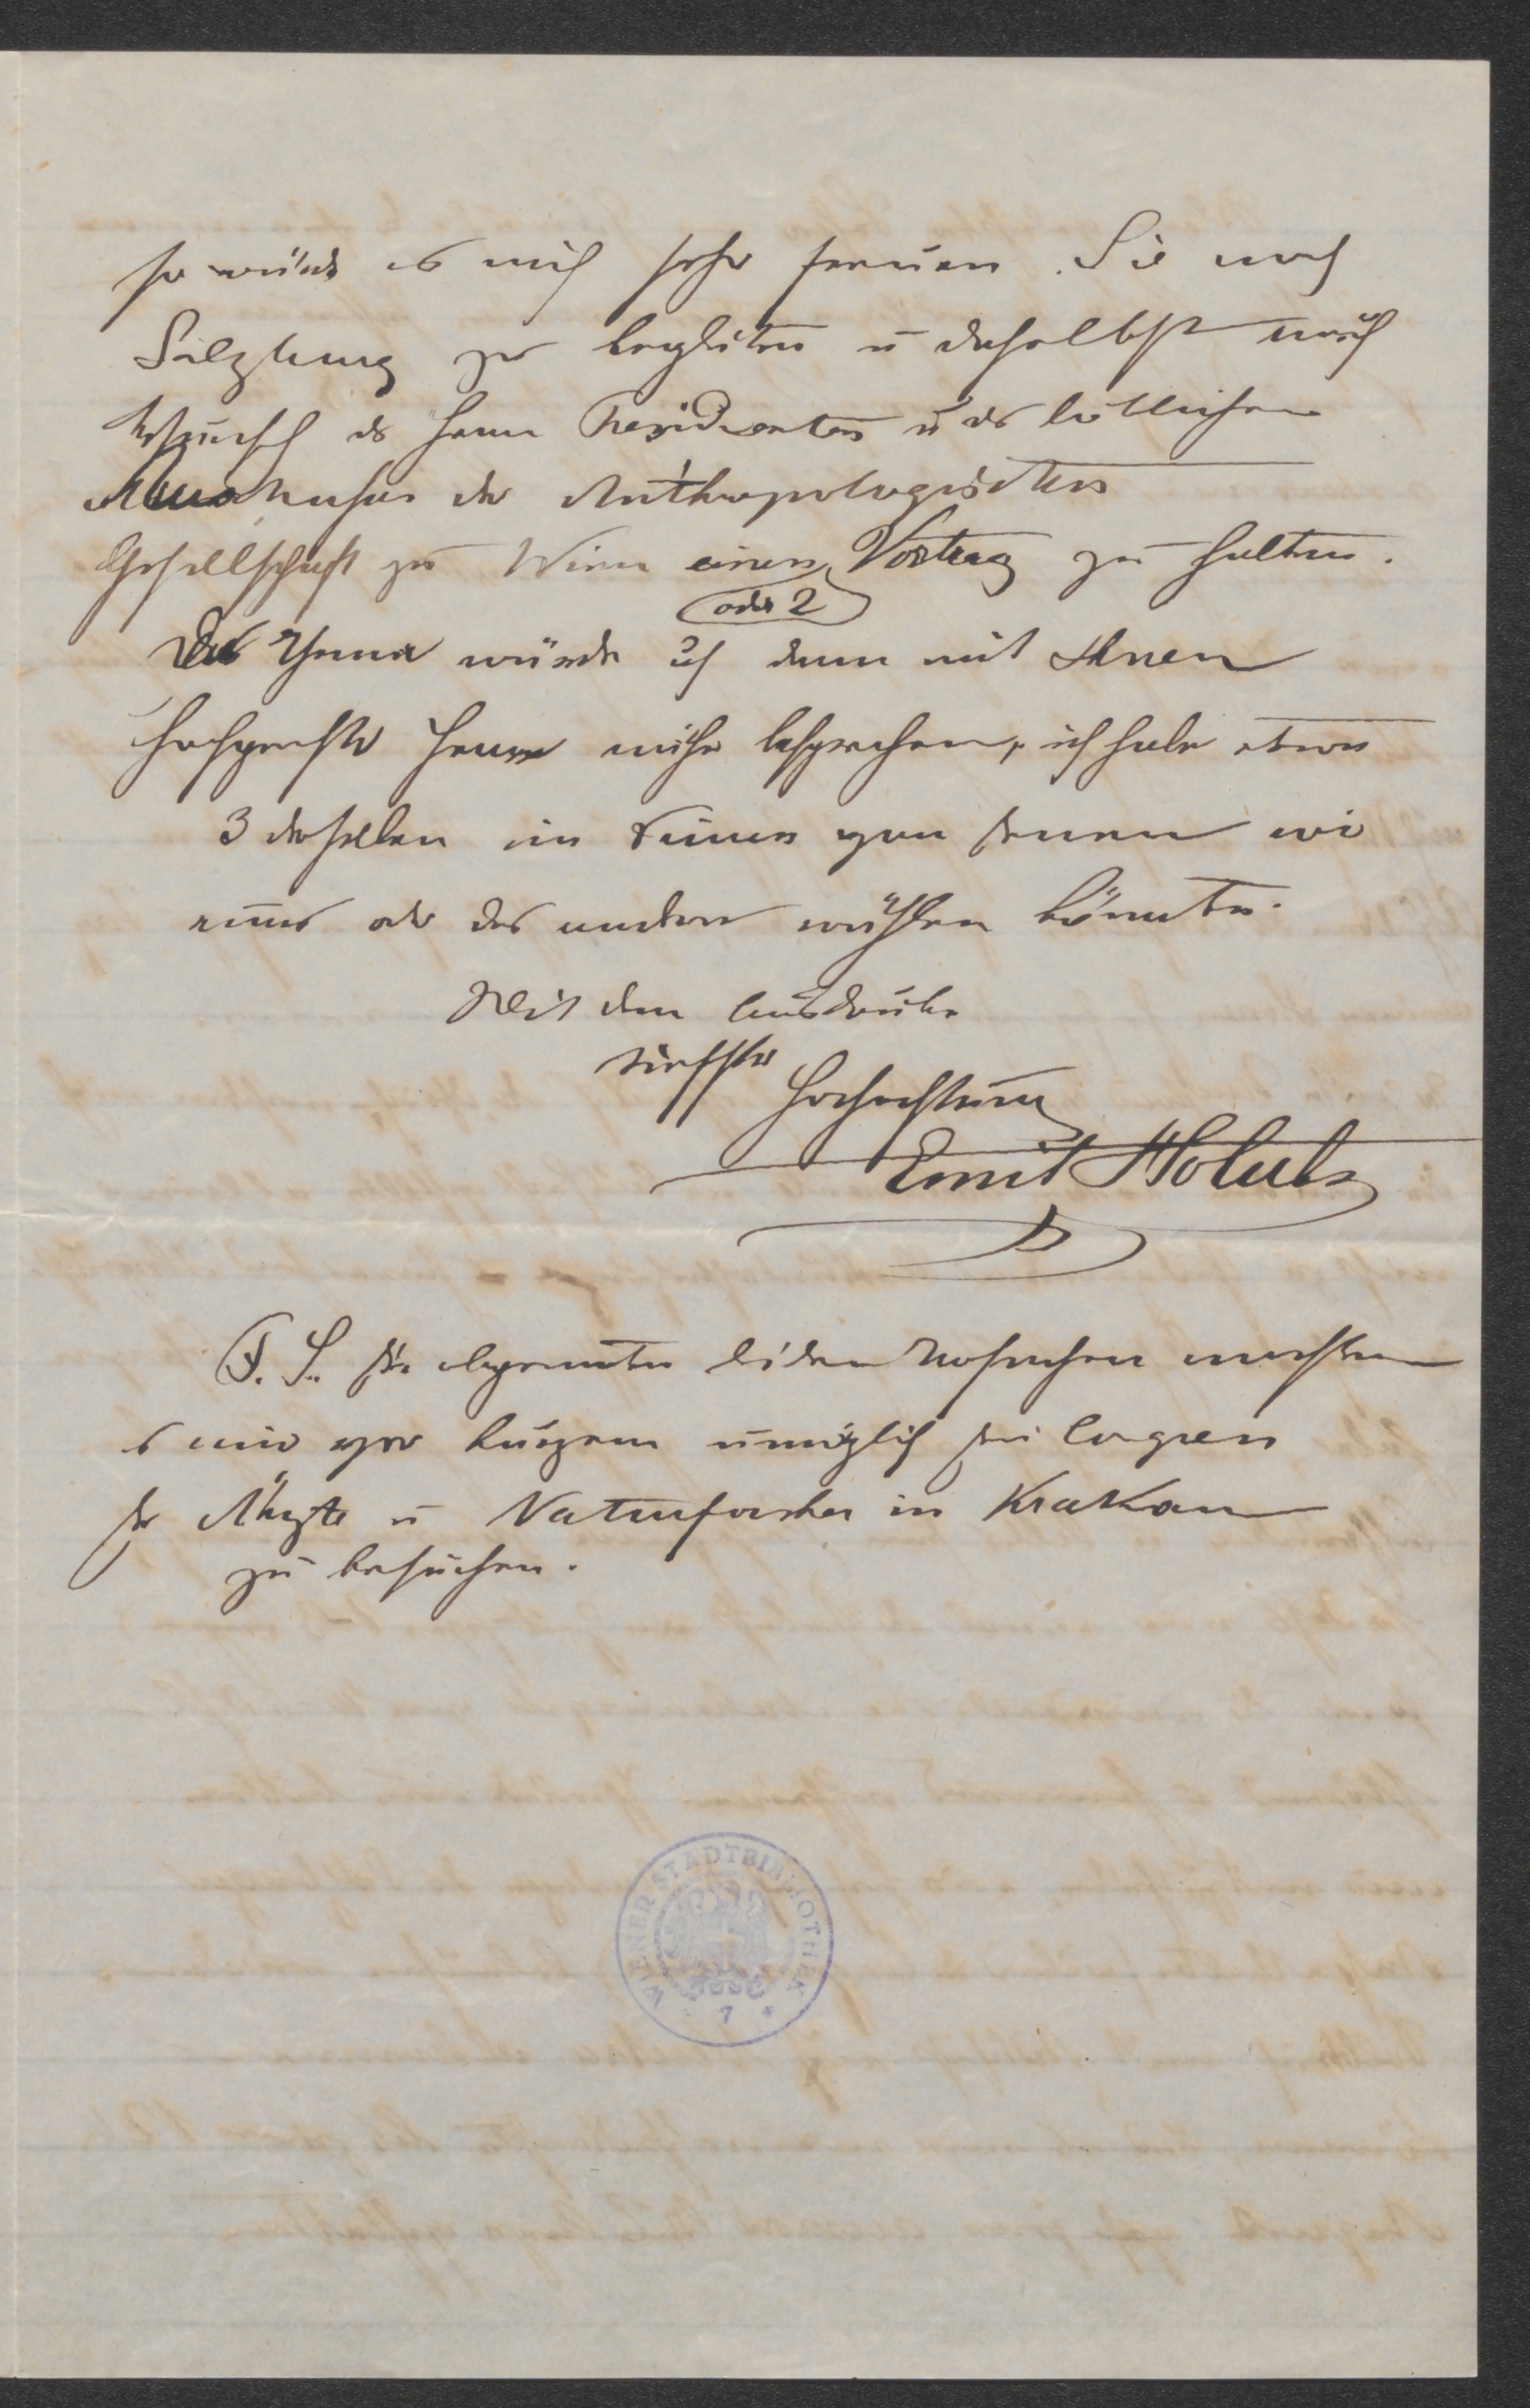 so würde es mich sehr freuen Sie nach
Salzburg zu begleiten u daselbst nach
Wunsch des Herrn Präsidenten u der löblichen
der Anthropologischen
Gesellschaft zu Wien einen Vortrag zu halten.
oder 2
Das Thema würde ich dann mit Ihnen
hochgeehrter Herr besprechen, ich habe etwa
3 derselben im Sinne von denen wir
eines oder das andere wählen könnten.
Mit dem Ausdrucke
tiefster
Hochachtung
Emil Holub
P. S. Die obgenannten beiden machten
es mir vor kurzem unmöglich den Congress
der Ärzte u Naturforscher in Krakau
zu besuchen.
WIENER STADTBIBLIOTHEK
7